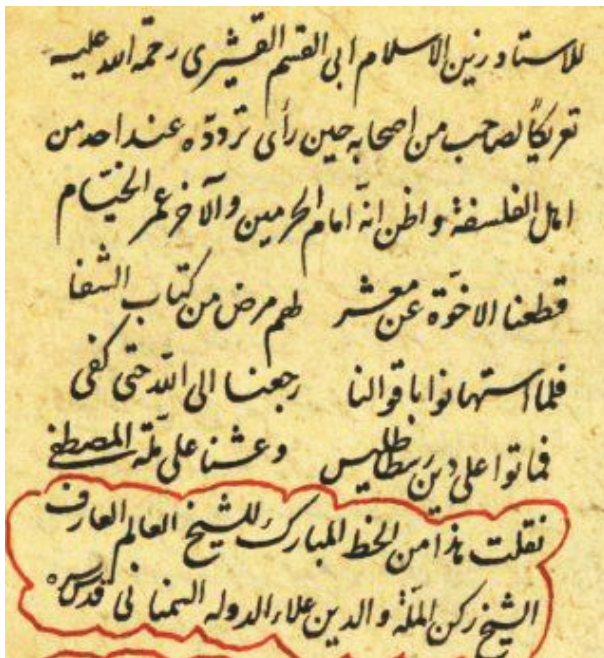 للاستاد زين الاسلام ابى القسم القشيرى رحمة الله عليه
تعريكاً لصاحب من اصحابه حين رأى تردده عند احد من
اهل الفلسفة و اظن انه امام الحرمين والآخر عمر الخيّام
قطعنا الاخوّة عن معشر لهم مرض من كتاب الشفا
فلما استهانوا باقوالنا رجعنا الى الله حتى كفى
فماتوا على دين رسطاطليس وعشنا على ملّة المصطفى
نقلت هذا من الخط المبارك للشيخ العالم العارف
الشيخ ركن الملّة والدين علاء الدوله السمنانى قدس سره